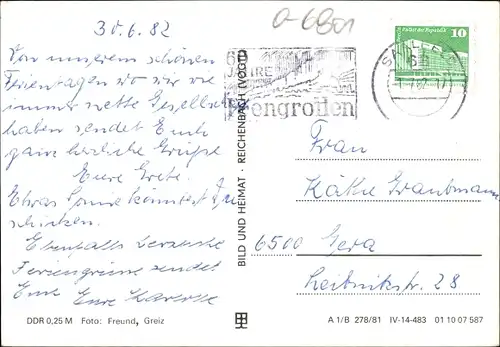 30.6.82
o-6801
Von unserem schönen
Ferientagen wo wir wie
immer nette Gesellsch.
haben sendet Euch
ganz herzliche Grüße
Eure Grete.
Etwas Sonne könntet Ihr
schicken.
Ebenfalls
Feriengrüsse sendet
Eure
DDR 0,25 M Foto: Freund, Greiz
BILD UND HEIMAT · REICHENBACH (VOGTL)
60
JAHRE
Feengrotten
SAALFELD
68
10
Palast der Republik
DDR
Frau
Käthe Graubmann
6500 Gera
Leibnizstr. 28
A 1/B 278/81 IV-14-483 01 10 07 587